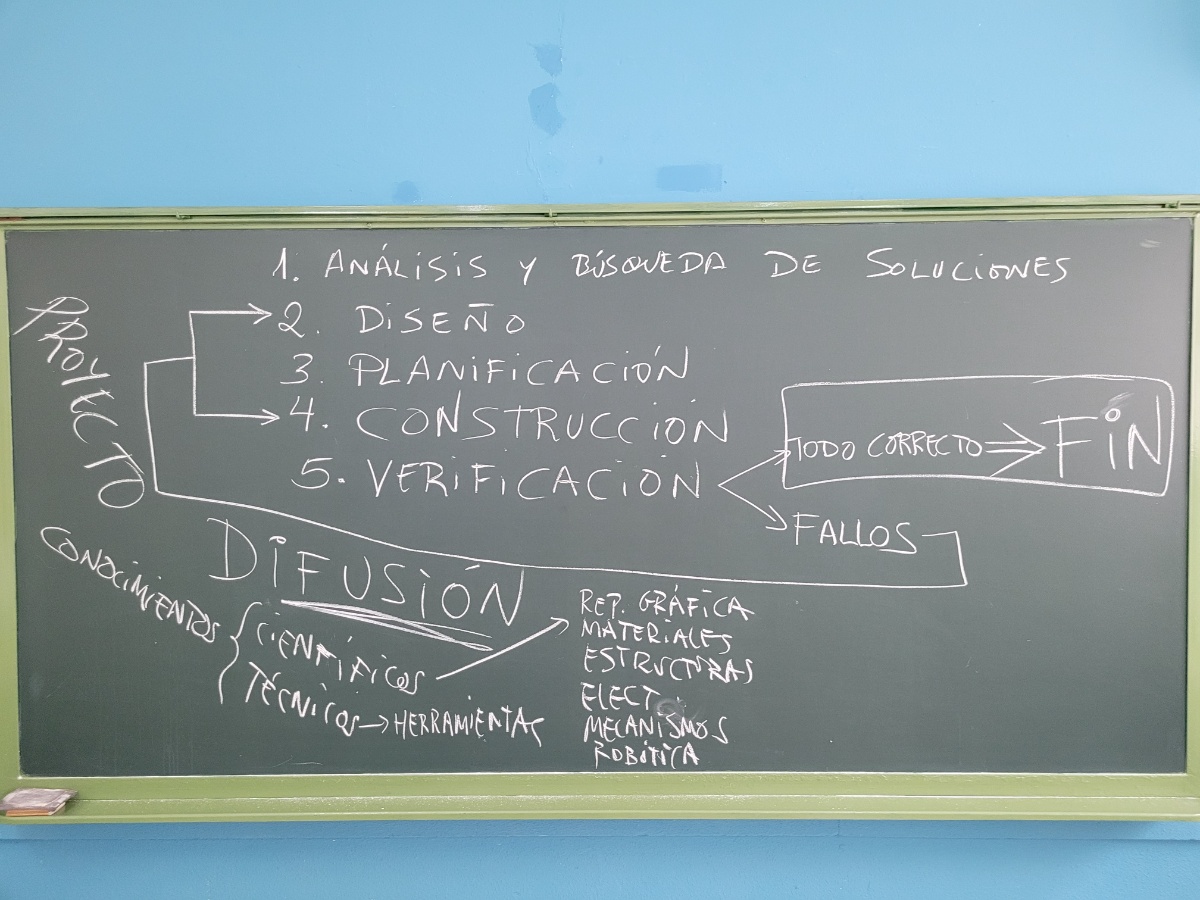 PROYECTO
1. ANÁLISIS Y BÚSQUEDA DE SOLUCIONES
2. DISEÑO
3. PLANIFICACIÓN
4. CONSTRUCCIÓN
5. VERIFICACIÓN
TODO CORRECTO
FIN
FALLOS
DIFUSIÓN
CONOCIMIENTOS
CIENTÍFICOS
TÉCNICOS
HERRAMIENTAS
REP. GRÁFICA
MATERIALES
ESTRUCTURAS
ELECT.
MECANISMOS
ROBÓTICA